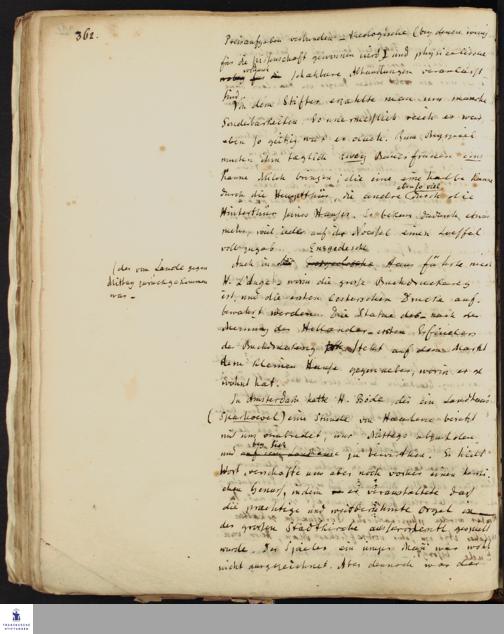 362.
Preisaufgaben verbunden – theologische (bey denen wenig
für die Wissenschaft gewonnen wird) und physicalische
wodurch schätzbare Abhandlungen veranlasst
sind.
Von dem Stifter erzählte man uns manche
Sonderbarkeiten. So unermesslich reich er war
eben so geitzig war er auch. Zum Beyspiel
mussten ihm täglich zwey Bauerfrauen eine
Kanne Milch bringen, die eine, eine halbe Kanne
durch die Hauptthür, die andre eben so viel durch die
Hinterthür seines Hauses. Er bekam dadurch etwas
mehr, weil jede auf der Noessel einen Loeffel
voll zugab.
Auch in das Haus führte mich
(der vom Lande gegen
Mittag zurückgekommen
war –
H. L'Ange, worin die grosse Buchdruckerey
ist, und die ersten Costerschen Drucke auf-
bewahrt werden. Die Statue des – nach der
Meinung der Holländer – ersten Erfinders
der Buchdruckerey steht auf dem Markt
dem kleinen Hause gegenueber, worin er ge
wohnt hat.
In Amsterdam hatte H. Bode, der ein Landhaus
(Sparhoevel) eine Stunde von Haarlem besizt
mit uns verabredet, uns Mittags abzuholen
und bey sich zu bewirthen. Er hielt
Wort, verschafte uns aber noch vorher einen
chen Genuss, indem er veranstaltete das
die prächtige und weitberühmte Orgel in
der grossen Stadtkirche ausserordentl. gespielt
wurde. Der Spieler ein junger Mann war wohl
nicht ausgezeichnet. Aber dennoch war der
FRANCKESCHE
STIFTUNGEN